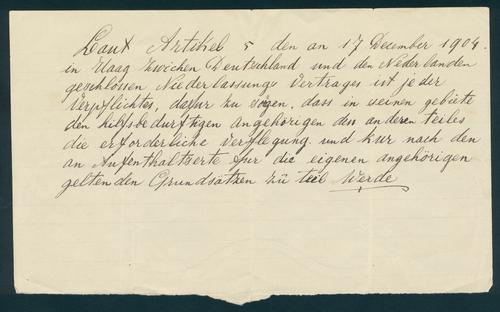 Laut Artikel 5 den an 17 December 1904.
in Haag zwichen Deutschland und den Nederlanden
geschlossen Niederlassungs Vertrages ist jeder
Verpflichtes, dafur zu sorgen, dass in seinen gebiete
den hilfsbedurftigen angehörigen des anderen teiles
die erforderliche Verflegung und kur nach den
an Aufenthaltserte fur die eigenen angehörigen
geltenden Grundsätzen zü teil Werde